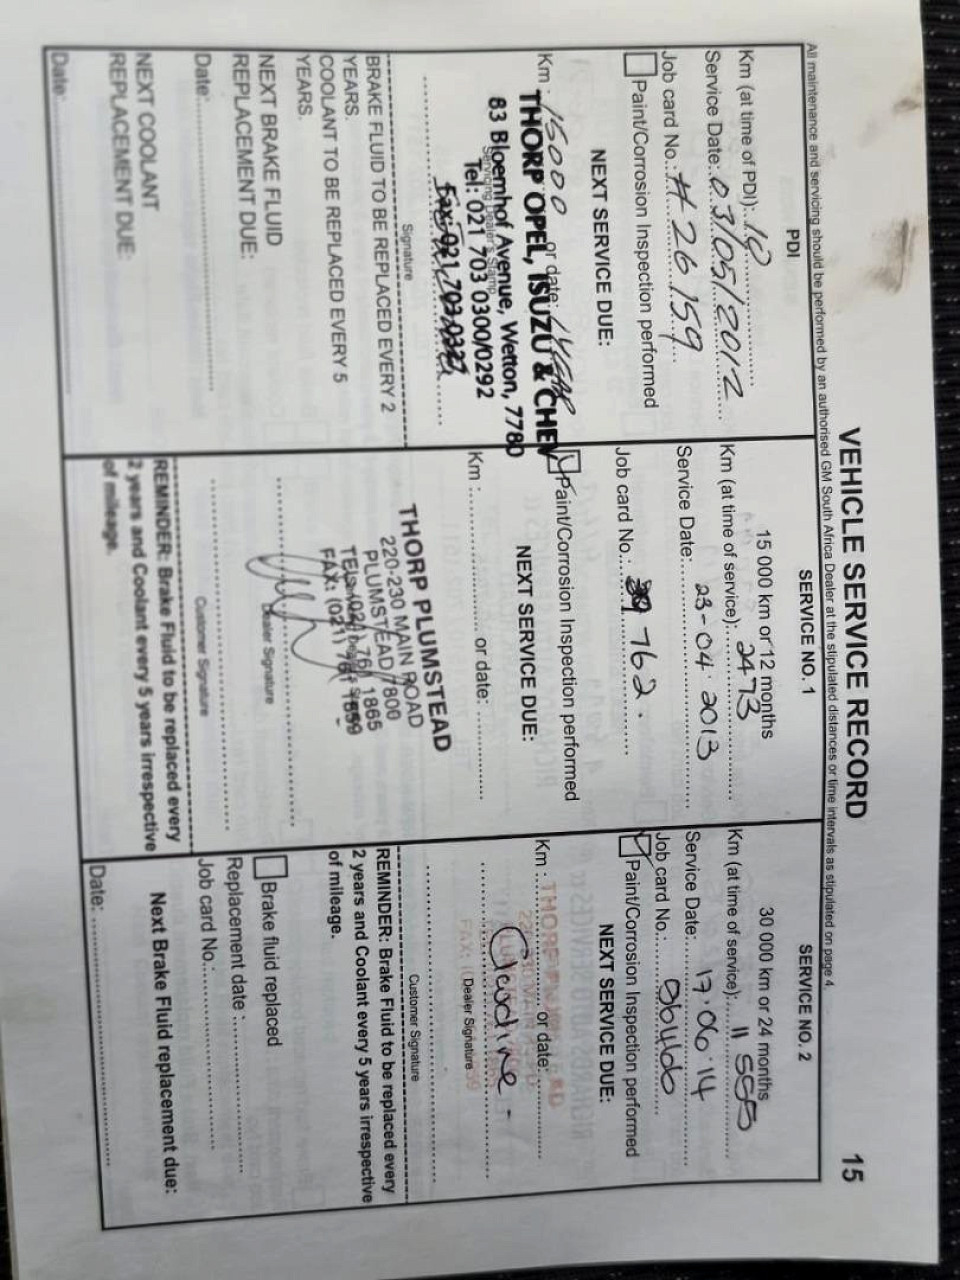 VEHICLE SERVICE RECORD 15
All maintenance and servicing should be performed by an authorised GM South Africa Dealer at the stipulated distances or time intervals as stipulated on page 4.
PDI
Km (at time of PDI): 10
Service Date: 03/05/2012
Job card No.: # 26159
Paint/Corrosion Inspection performed
NEXT SERVICE DUE:
Km : 15000 or date: 1 YEAR
THORP OPEL, ISUZU & CHEV
83 Bloemhof Avenue, Wetton, 7780
Servicing Dealer's Stamp
Tel: 021 703 0300/0292
Fax: 021 703 0327
Signature
BRAKE FLUID TO BE REPLACED EVERY 2
YEARS.
COOLANT TO BE REPLACED EVERY 5
YEARS.
NEXT BRAKE FLUID
REPLACEMENT DUE:
Date:
NEXT COOLANT
REPLACEMENT DUE:
Date:
SERVICE NO. 1
15 000 km or 12 months
Km (at time of service): 2473
Service Date: 23-04-2013
Job card No.: 762.
Paint/Corrosion Inspection performed
NEXT SERVICE DUE:
Km : or date:
THORP PLUMSTEAD
220-230 MAIN ROAD
PLUMSTEAD 7800
TEL: (021) 761 1865
FAX: (021) 761 1559
Dealer Signature
Customer Signature
REMINDER: Brake Fluid to be replaced every
2 years and Coolant every 5 years irrespective
of mileage.
SERVICE NO. 2
30 000 km or 24 months
Km (at time of service): 11 555
Service Date: 17.06.14
Job card No.:
Paint/Corrosion Inspection performed
NEXT SERVICE DUE:
Km : or date:
THORP
Dealer Signature
Customer Signature
REMINDER: Brake Fluid to be replaced every
2 years and Coolant every 5 years irrespective
of mileage.
Brake fluid replaced
Replacement date :
Job card No.:
Next Brake Fluid replacement due:
Date: